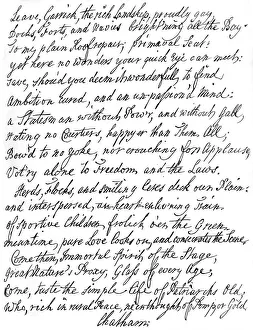 Leave, Garrick, the rich Landskip, proudly gay,
Docks, Forts, and Navies bright'ning all the Bay:
To my plain Roof repair, primæval Seat!
yet here no wonders your quick Eye can meet:
save, should you deem it wonderful, to find
Ambition cur'd, and an unpassion'd Mind:
a Statesman without Pow'r, and without Gall,
Hating no Courtiers, happyer than Them All;
Bow'd to no yoke, nor crouching for Applause,
Vot'ry alone to Freedom and the Laws.
Herds, flocks, and smiling Ceres deck our Plain:
and interspersed, an heart-enlivening Train
of sportive Children, frolick o'er the Green,
meantime, pure Love looks on, and consecrates the Scene.
Come then, Immortal Spirit of the Stage,
Great Nature's Proxy, Glass of every Age;
Come, taste the simple Life of Patriarchs Old,
Who, rich in rural Peace, ne'er thought of Pomp or Gold
Chatham